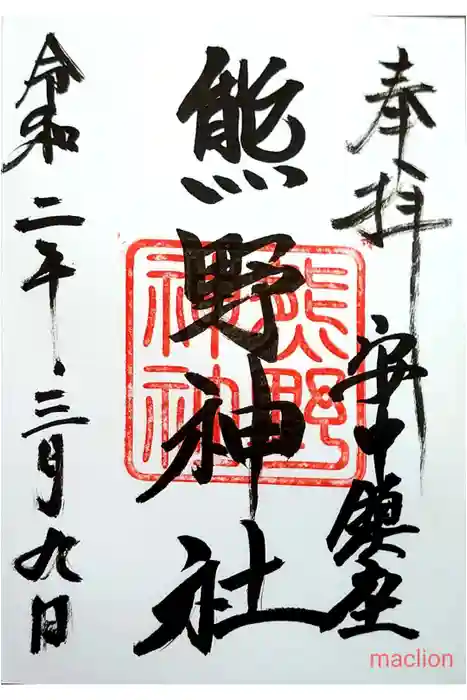 奉拝
安中鎮座
熊野神社
熊野
神社
令和二年三月九日
maclion